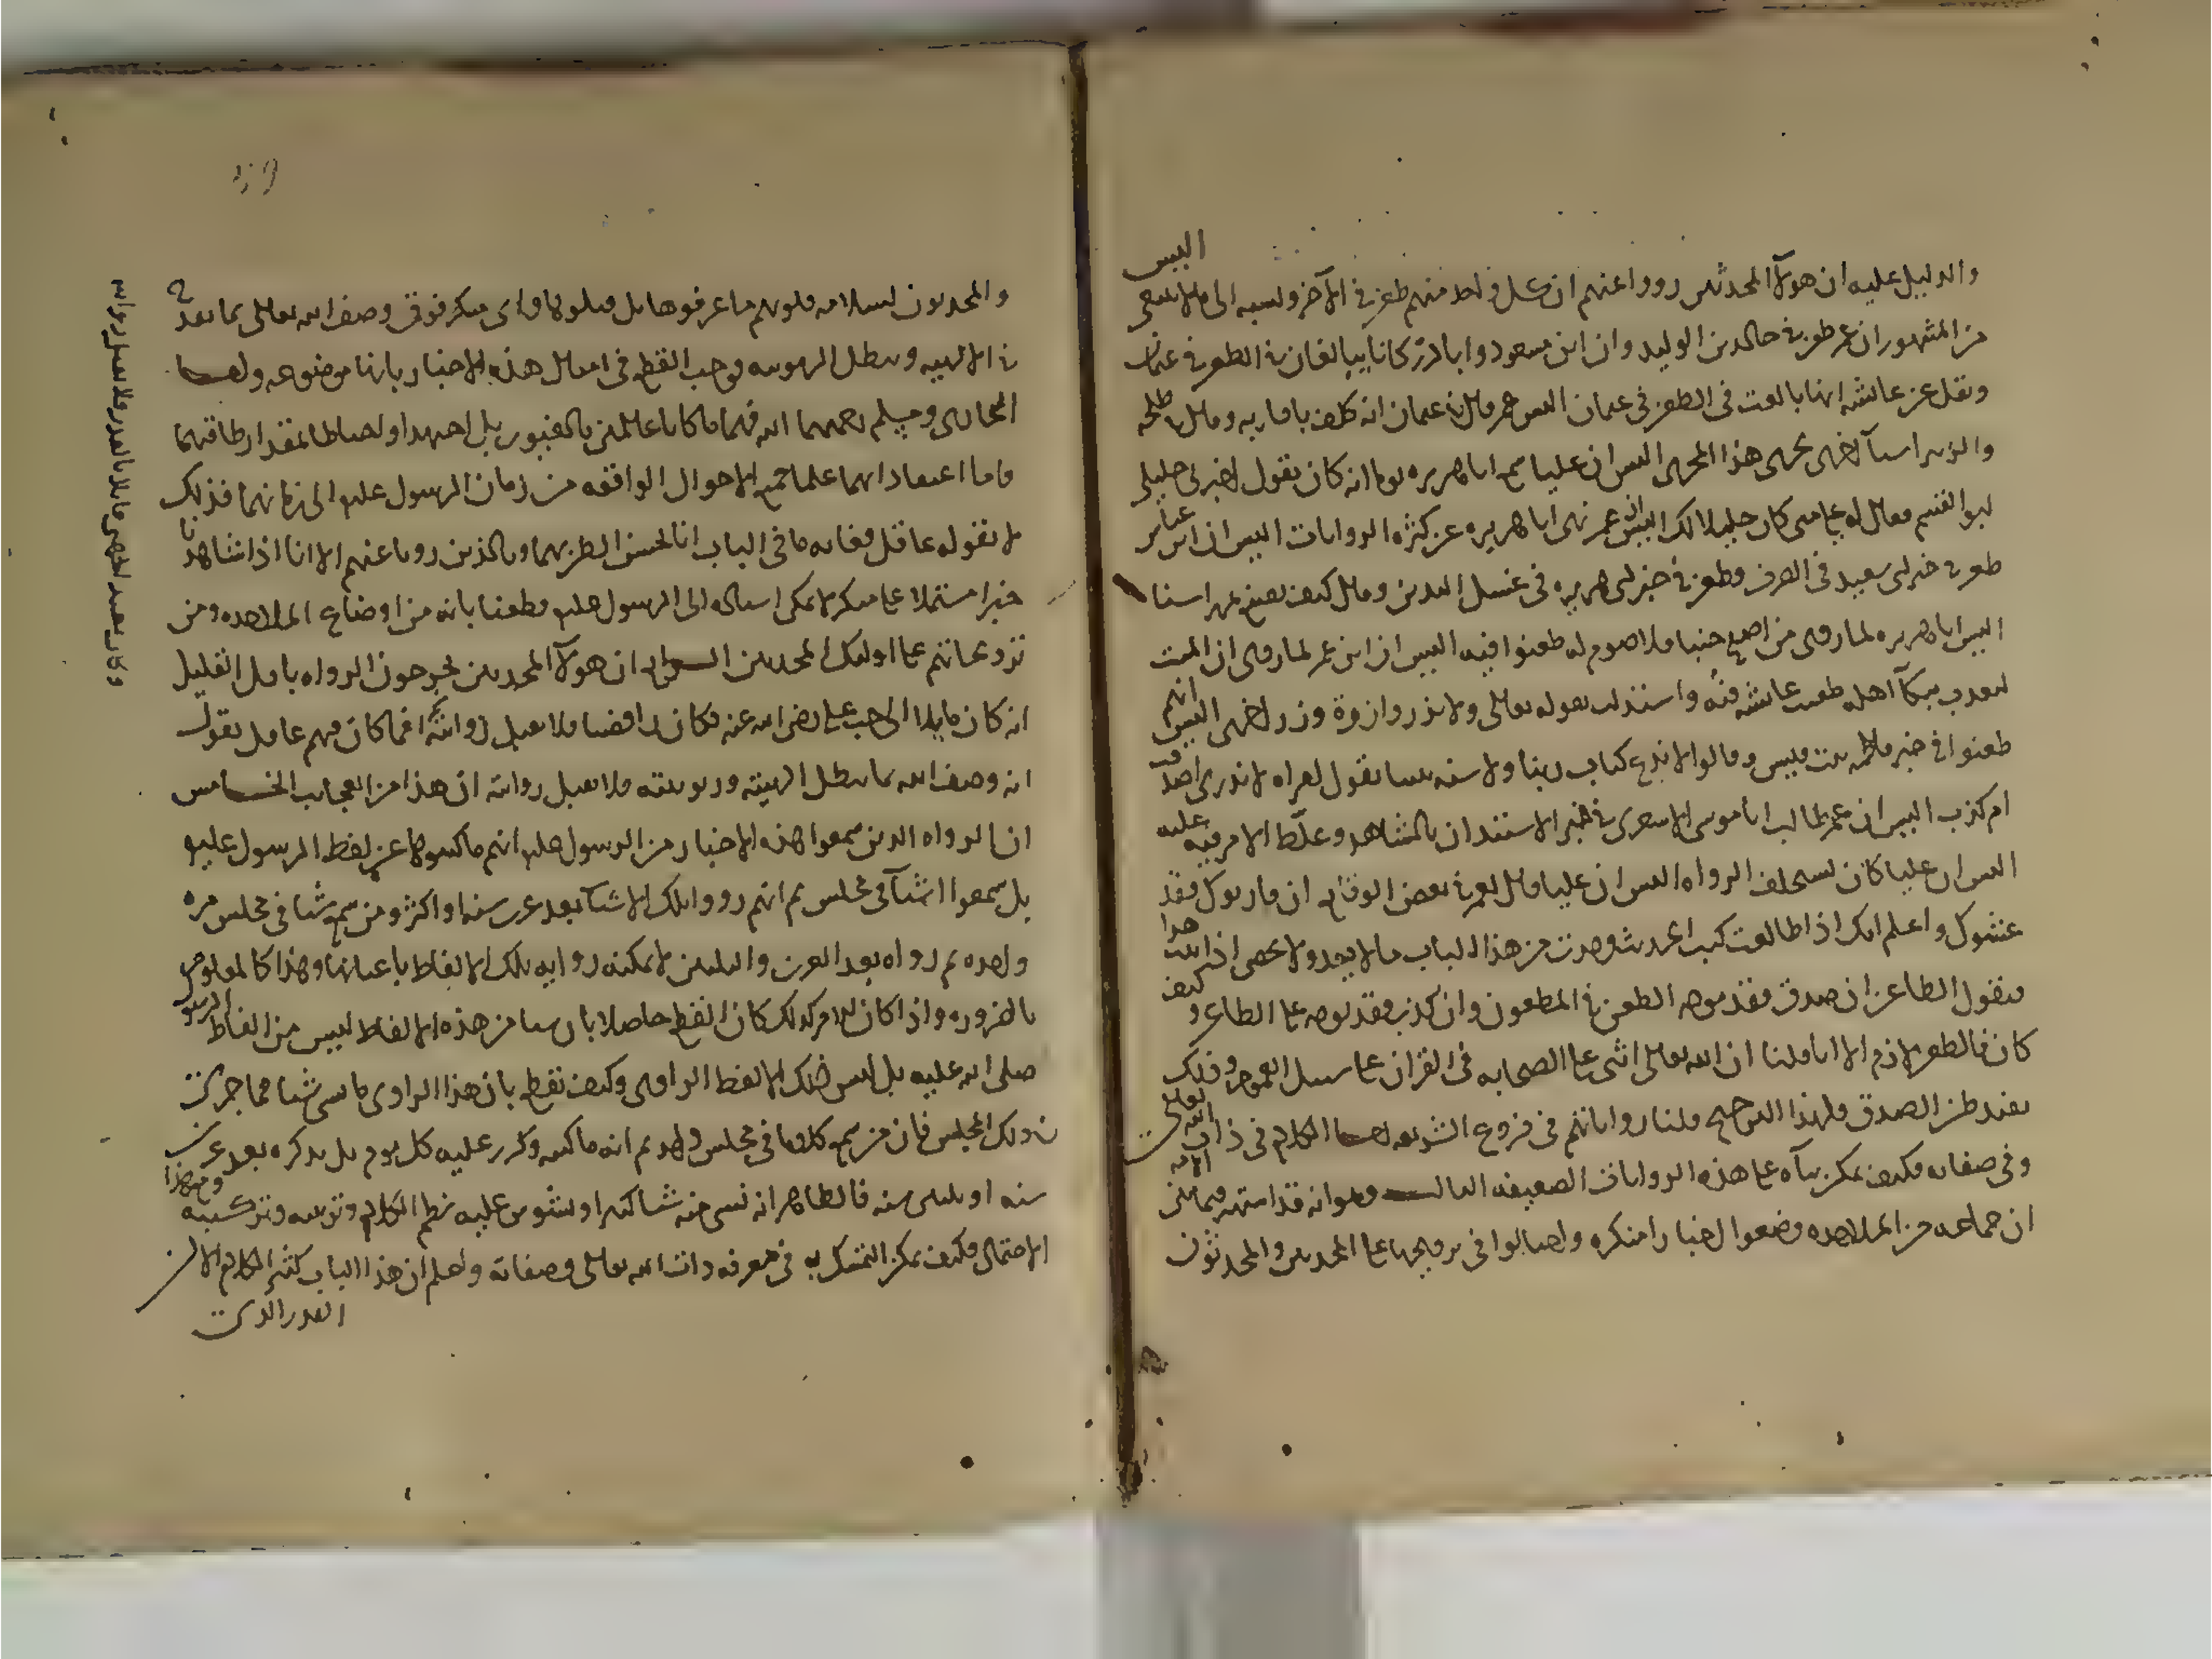 والدليل عليه ان هولآ المحدثين رووا عنهم ان كل واحد منهم طعن في الآخر ونسبه الى ما لا ينبغي اليس
من المشهور ان عمر طعن في خالد بن الوليد وان ابن مسعود وابا ذر كانا يبالغان في الطعن في عثمان
ونقل عن عايشه انها بالغت في الطعن في عثمان اليس عمر قال في عثمان انه كلف باقاربه وقال في طلحه
والزبير اشيآ اخرى تجرى هذا المجرى اليس ان عليا سمع ابا هريره يوما انه كان يقول اخبرني خليلي
ابو القسم فقال له علي متى كان خليلا لك اليس ان عمر نهى ابا هريره عن كثره الروايات اليس ان ابن عباس
طعن في خبر ابي سعيد في الصرف وطعن في خبر ابي هريره في غسل اليدين وقال كيف يصنع بمهراسنا
اليس ابا هريره لما روى من اصبح جنبا فلا صوم له طعنوا فيه اليس ان ابن عمر لما روى ان الميت
ليعذب ببكآ اهله طعنت عايشه فيه واستدلت بقوله تعالى ولا تزر وازرة وزر اخرى اليس انهم
طعنوا في خبر فاطمه بنت قيس وقالوا لا ندع كتاب ربنا ولا سنه نبينا بقول امراه لا ندري اصدقت
ام كذبت اليس ان عمر طالب ابا موسى الاشعرى في خبر الاستئذان بالشاهد وغلظ الامر فيه عليه
اليس ان عليا كان يستحلف الرواه اليس ان عليا قال لعمر في بعض الوقايع ان قاربوك فقد
غشوك واعلم انك اذا طالعت كتب الحديث وجدت من هذا الباب ما لا يعد ولا يحصى اذا ثبت هذا
فنقول الطاعن ان صدق فقد توجه الطعن في المطعون وان كذب فقد توجه على الطاعن وكيف
كان فالطعن لازم الا انا قلنا ان الله تعالى اثنى على الصحابه في القران على سبيل العموم وذلك
يفيد ظن الصدق فلهذا الترجيح قبلنا رواياتهم في فروع الشريعه اما الكلام في ذات الله تعالى
وفي صفاته فكيف يمكن بنآه على هذه الروايات الضعيفه الثالث وهوانه قد اشتهر فيما بين الامه
ان جماعه من الملاحده وضعوا اخبارا منكره واحتالوا في ترويجها على المحدثين والمحدثون
والمحدثون لسلامه قلوبهم ما عرفوها بل قبلوها واى منكر فوق وصف الله تعالى بما يقدح
في الالهيه ويبطل الربوبيه فوجب القطع في امثال هذه الاخبار بانها موضوعه واما
البخارى ومسلم رحمهما الله فهما ما كانا عالمين بالغيوب بل اجتهدا واحتاطا بمقدار طاقتهما
فاما اعتقاد انهما علما جميع الاحوال الواقعه من زمان الرسول عليه الى زمانهما فذلك
لا يقوله عاقل فغايه ما في الباب انا نحسن الظن بهما وبالذين رويا عنهم الا انا اذا شاهدنا
خبرا مشتملا على منكر لا يمكن اسناده الى الرسول عليه قطعنا بانه من اوضاع الملاحده ومن
ترويجاتهم على اوليك المحدثين الرابع ان هولآ المحدثين يجرحون الرواه باقل القليل
انه كان مايلا الى حب علي رضى الله عنه فكان رافضيا فلا تقبل روايته افما كان فيهم عاقل يقول
انه وصف الله بما يبطل الهيته وربوبيته فلا تقبل روايته ان هذا من العجايب الخامس
ان الرواه الذين سمعوا هذه الاخبار من الرسول عليه انهم ما كتبوها عن لفظ الرسول عليه
بل سمعوا اشيآ في مجلس ثم انهم رووا تلك الاشيآ بعد عشرين سنه او اكثر ومن سمع شيئا في مجلس مره
واحده ثم رواه بعد العشرين والثلثين لا يمكنه روايه تلك الالفاظ باعيانها وهذا كالمعلوم
بالضروره واذا كان الامر كذلك كان القطع حاصلا بان شيئا من هذه الالفاظ ليس من الفاظ الرسول
صلى الله عليه بل ليس ذلك الا لفظ الراوى وكيف نقطع بان هذا الراوى ما نسى شيئا مما جرى
في ذلك المجلس فان من سمع كلاما في مجلس واحد ثم انه ما كتبه وكرر عليه كل يوم بل يذكره بعد عشرين
سنه او ثلثين سنه فالظاهر انه نسى منه شيئا كثيرا وتشوش عليه نظم الكلام وترتيبه وتركيبه ومع هذا
الاحتمال فكيف يمكن التمسك به في معرفه ذات الله تعالى وصفاته واعلم ان هذا الباب كثير الكلام الا ان
القدر الذى